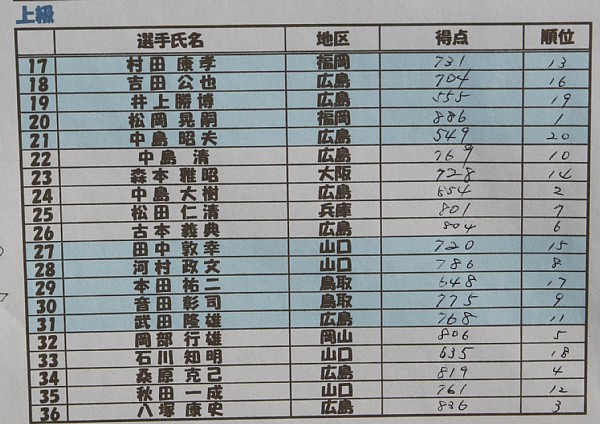 上級
選手氏名 地区 得点 順位
17 村田 康孝 福岡 731 13
18 吉田 公也 広島 704 16
19 井上勝博 広島 555 19
20 松岡晃嗣 福岡 886 1
21 中島 昭夫 広島 549 20
22 中島 清 広島 769 10
23 森本 雅昭 大阪 728 14
24 中島 大樹 広島 854 2
25 松田 仁清 兵庫 801 7
26 古本 義典 広島 804 6
27 田中 敦幸 山口 720 15
28 河村 政文 山口 786 8
29 本田 祐二 鳥取 648 17
30 音田 彰司 鳥取 775 9
31 武田 隆雄 広島 768 11
32 岡部 行雄 岡山 806 5
33 石川 知明 山口 635 18
34 桑原 克己 広島 819 4
35 秋田 一成 山口 761 12
36 八塚 康史 広島 836 3